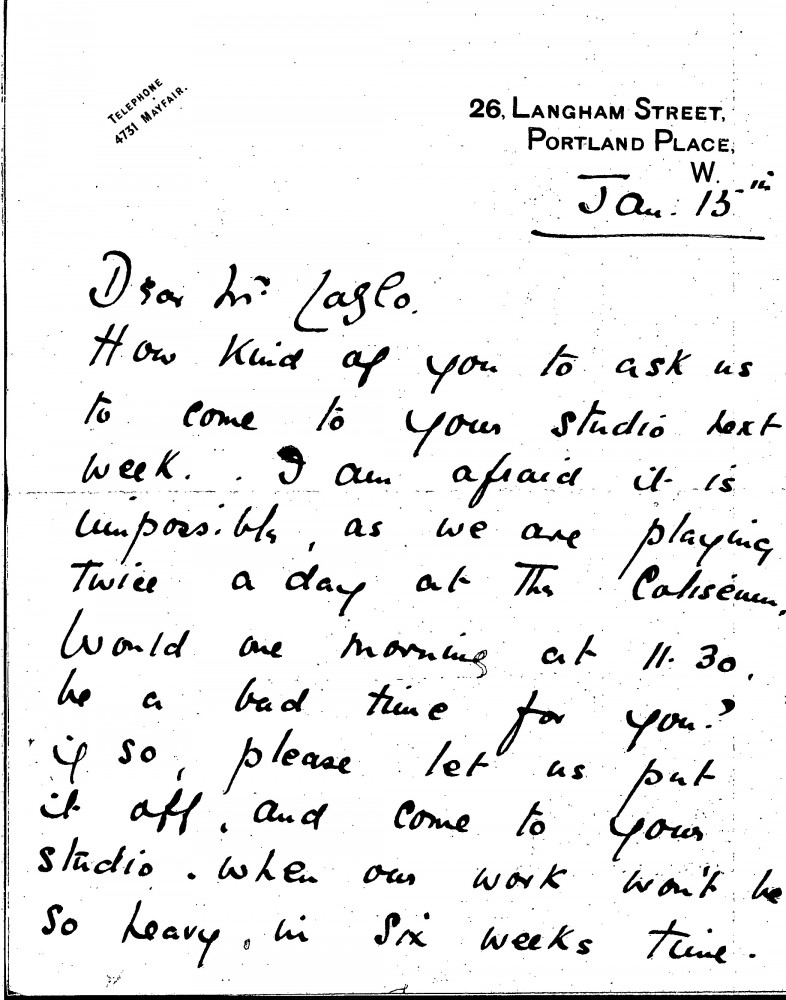 TELEPHONE
4731 MAYFAIR.
26, LANGHAM STREET,
PORTLAND PLACE,
W.
Jan. 15th
Dear Mr. Laszlo.
How kind of you to ask us
to come to your studio next
week. . I am afraid it is
impossible, as we are playing
twice a day at The Coliseum.
Would one morning at 11.30.
be a bad time for you?
if so, please let us put
it off, and come to your
studio. when our work won't be
so heavy, in six weeks time.